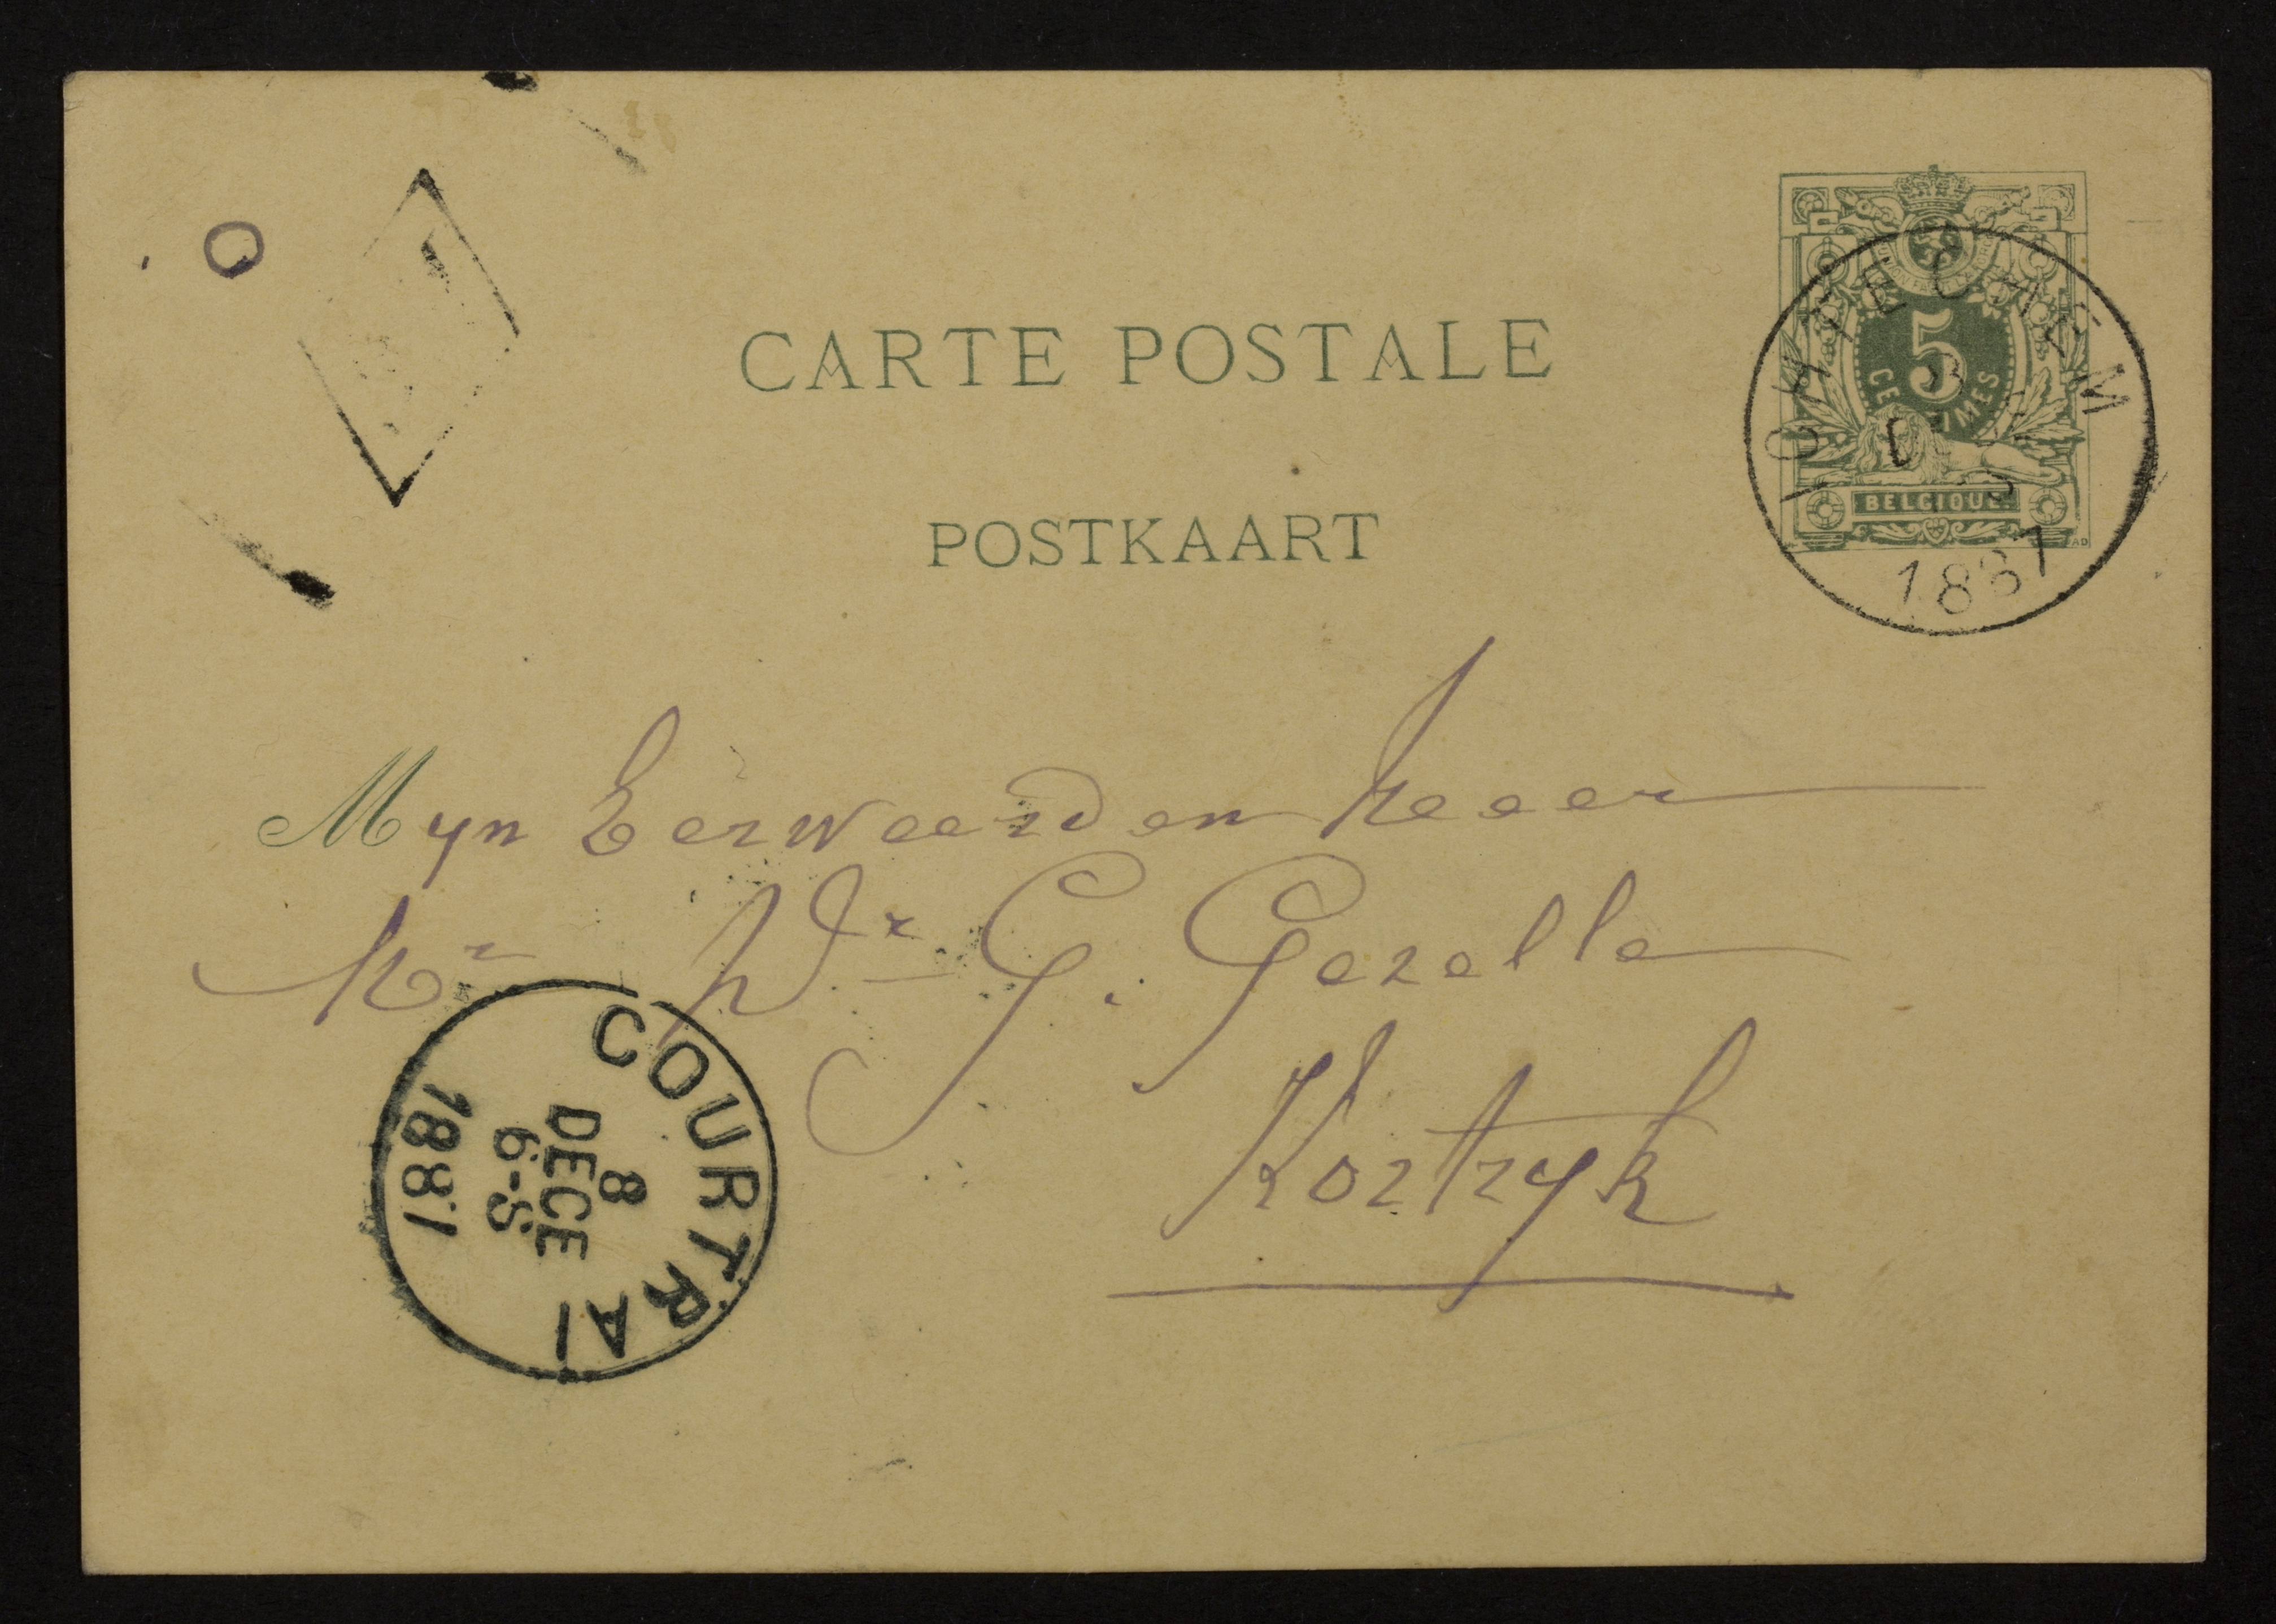 CARTE POSTALE
POSTKAART
5
CENTIMES
BELGIQUE
ICHTEGHEM
1887
Myn Eerweerden heer
Mr Dr G. Gezelle
Kortryk
COURTRAI
8
DECE
6-S
1887